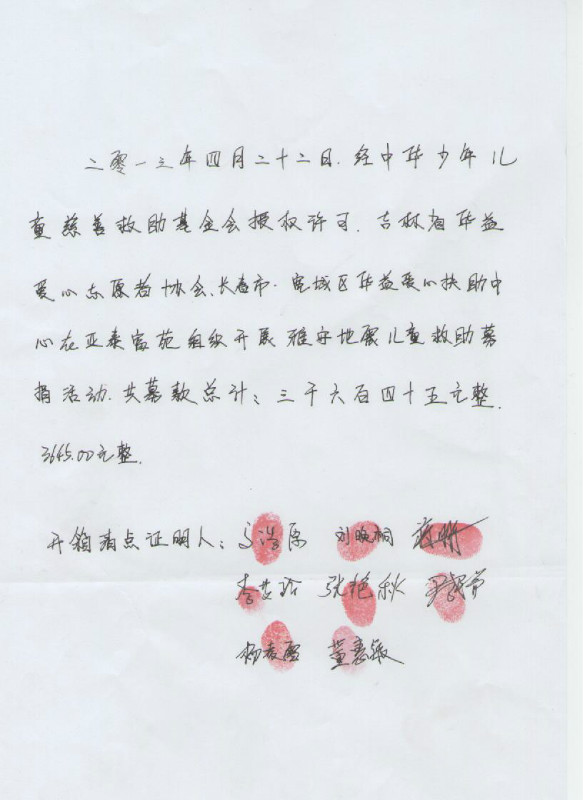 二零一三年四月二十二日.经中华少年儿
童慈善救助基金会授权许可.吉林省华益
爱心志愿者协会、长春市.宽城区华益爱心扶助中
心在亚泰富苑组织开展雅安地震儿童救助募
捐活动.共募款总计:三千六百四十五元整.
3645.00元整.
开箱清点证明人: 刘晓桐
张艳秋